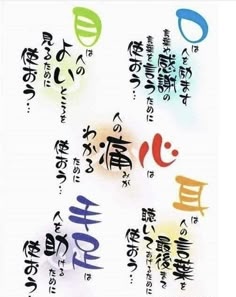 口は人を励ます
言葉や感謝の
言葉を言うために
使おう…
目は人の
よいところを
見るために
使おう…
心は
人の痛みが
わかるために
使おう…
耳は人の言葉を
最後まで
聴いてあげるために
使おう…
手足は
人を助けるために
使おう…